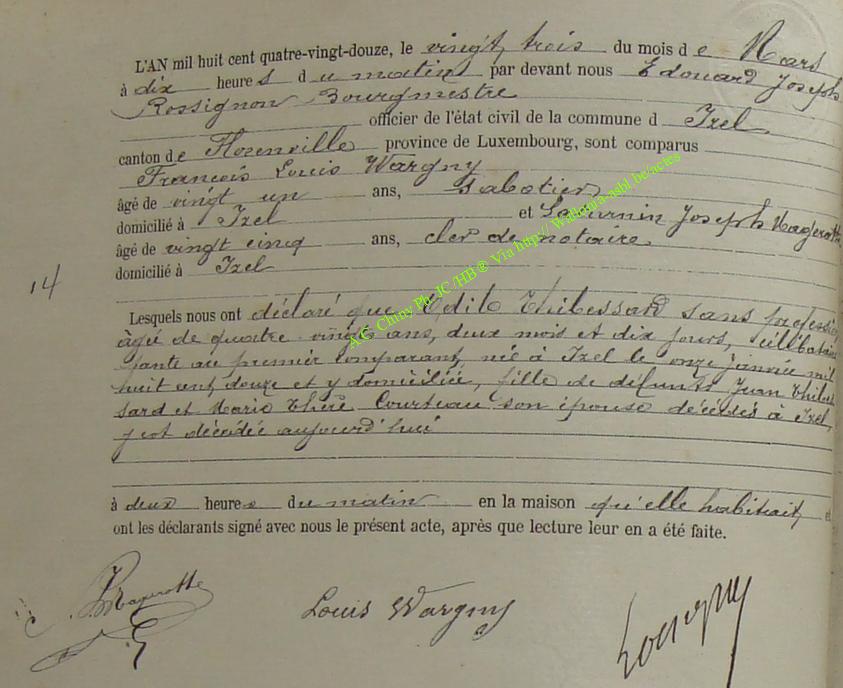 L'AN mil huit cent quatre-vingt-douze, le vingt trois du mois de Mars
à dix heures du matin par devant nous Edouard Joseph
Rossignon Bourgmestre
officier de l'état civil de la commune d Izel
canton de Florenville province de Luxembourg, sont comparus
Francois Louis Wargny
âgé de vingt un ans, Sabotier
domicilié à Izel et Saturnin Joseph
âgé de vingt cinq ans, clerc de notaire
domicilié à Izel
14
Lesquels nous ont déclaré que Thibessard sans profession
âgée de quatre vingts ans, deux mois et dix jours, célibataire
parente au premier comparant, née à Izel le onze janvier mil
huit cent douze et y domiciliée, fille de défunts Jean Thibes
sard et Marie Thérè Courteau son épouse décédés à Izel,
y est décédée aujourd'hui
à deux heures du matin en la maison qu'elle habitait, et
ont les déclarants signé avec nous le présent acte, après que lecture leur en a été faite.
Louis Wargny
A.C. Chiny Ph. JC/HB ® Via http:// Wallonia-asbl.be/actes